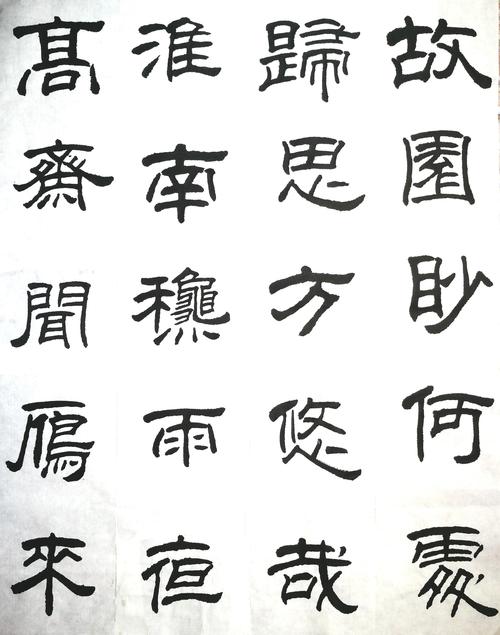 故園眇何處
歸思方悠哉
淮南穐雨夜
高齋聞鴈來